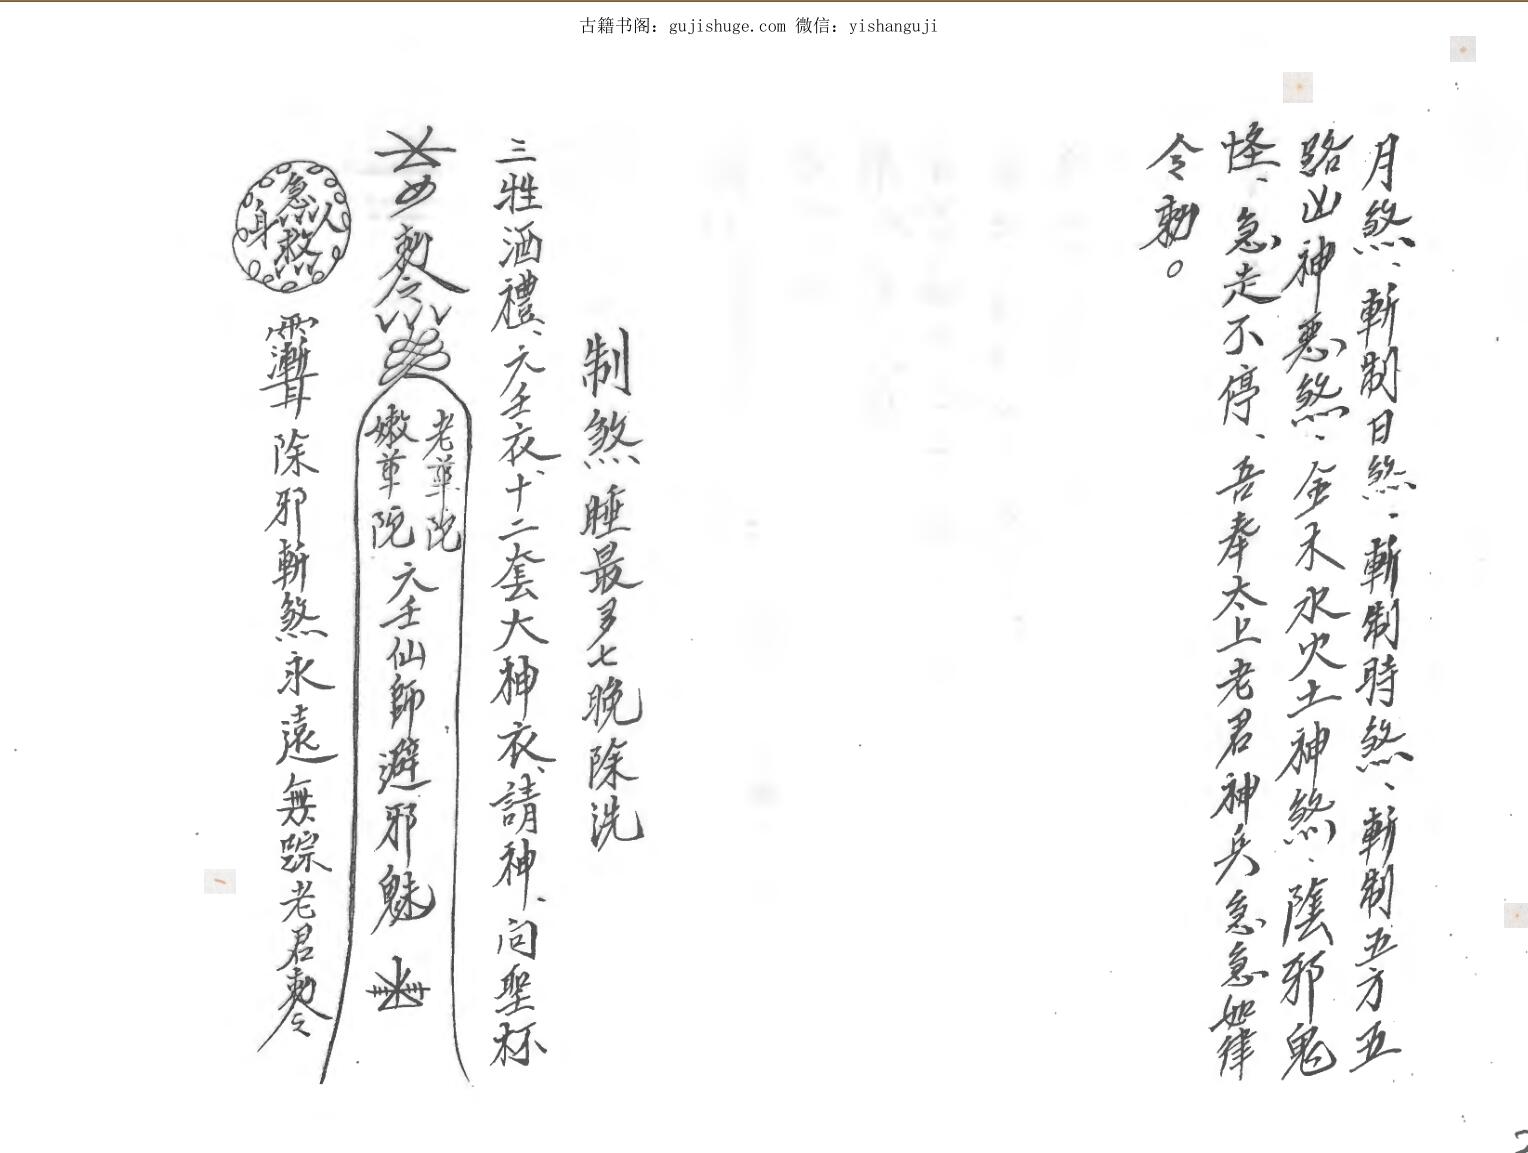 古籍书阁：gujishuge.com 微信：yishanguji
月煞、斬制日煞、斬制時煞、斬制五方五
路凶神惡煞、金木水火土神煞、陰邪鬼
怪、急走不停、吾奉太上老君神兵急急如律
令勅。
制煞睡最多七晚除洗
三牲酒禮、六壬衣、十二套大神衣、請神、问聖杯
勅令
老華院
嫩華院
六壬仙師避邪魅
急救
人
身
除邪斬煞永遠無踪老君勅令